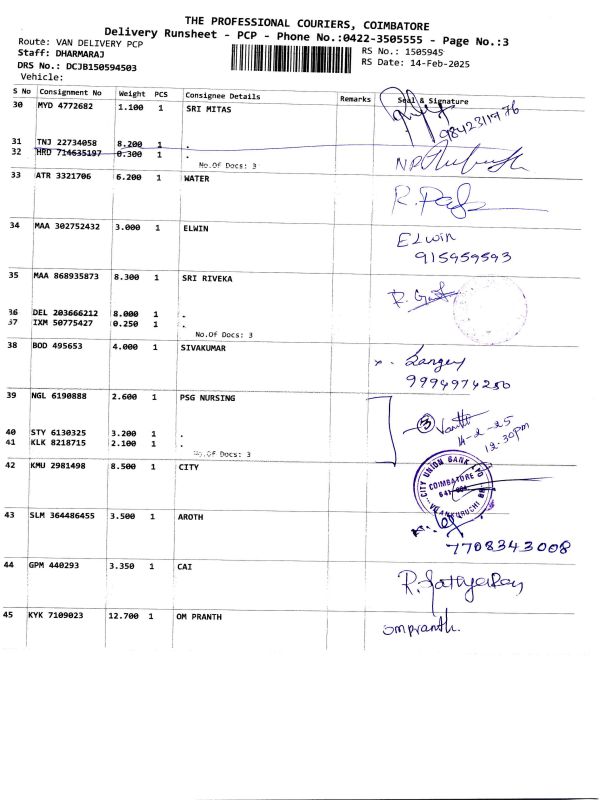 THE PROFESSIONAL COURIERS, COIMBATORE
Delivery Runsheet - PCP - Phone No.:0422-3505555 - Page No.:3
Route: VAN DELIVERY PCP
Staff: DHARMARAJ
DRS No.: DCJB150594503
Vehicle:
RS No.: 1505945
RS Date: 14-Feb-2025
S No Consignment No Weight PCS Consignee Details Remarks Seal & Signature
30 MYD 4772682 1.100 1 SRI MITAS
9842311976
31 TNJ 22734058 8.200 1 .
32 HRD 714635197 0.300 1 .
No.Of Docs: 3
33 ATR 3321706 6.200 1 WATER
34 MAA 302752432 3.000 1 ELWIN
ELwin
915959593
35 MAA 868935873 8.300 1 SRI RIVEKA
36 DEL 203666212 8.000 1 .
37 IXM 50775427 0.250 1 .
No.Of Docs: 3
38 BOD 495653 4.000 1 SIVAKUMAR
9994974250
39 NGL 6190888 2.600 1 PSG NURSING
③
14-2-25
12.30pm
40 STY 6130325 3.200 1 .
41 KLK 8218715 2.100 1 .
No.Of Docs: 3
42 KMU 2981498 8.500 1 CITY
CITY UNION BANK LTD
COIMBATORE
43 SLM 364486455 3.500 1 AROTH
7708343008
44 GPM 440293 3.350 1 CAI
45 KYK 7109023 12.700 1 OM PRANTH
ompranth.